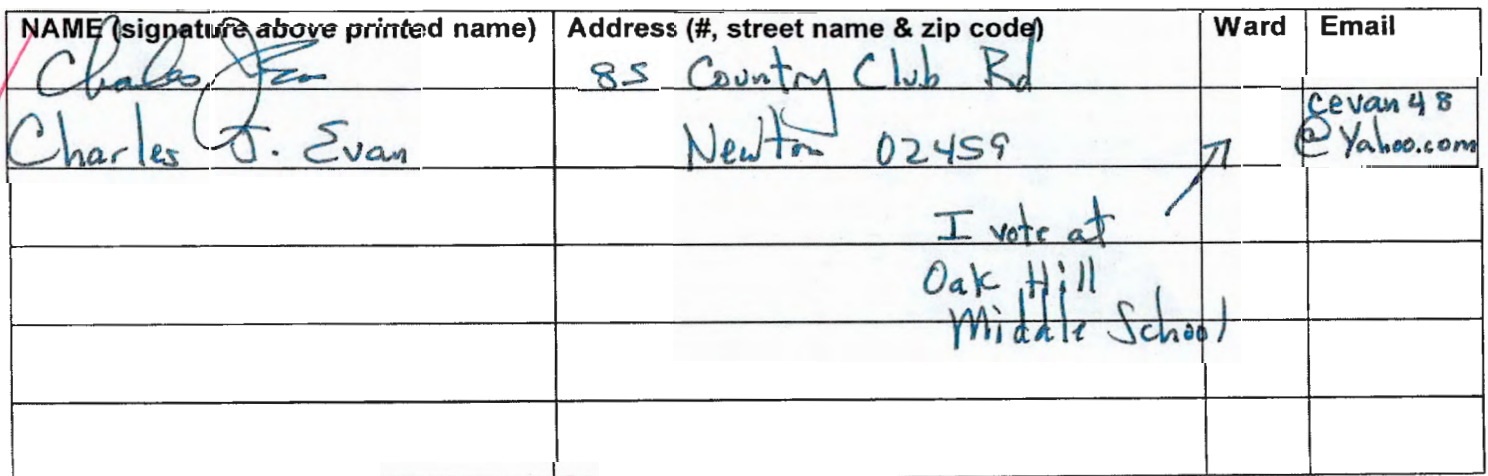 NAME (signature above printed name) Address (#, street name & zip code) Ward Email
Charles J. Evan 85 Country Club Rd
Charles J. Evan Newton 02459 cevan48
@Yahoo.com
I vote at
Oak Hill
Middle School